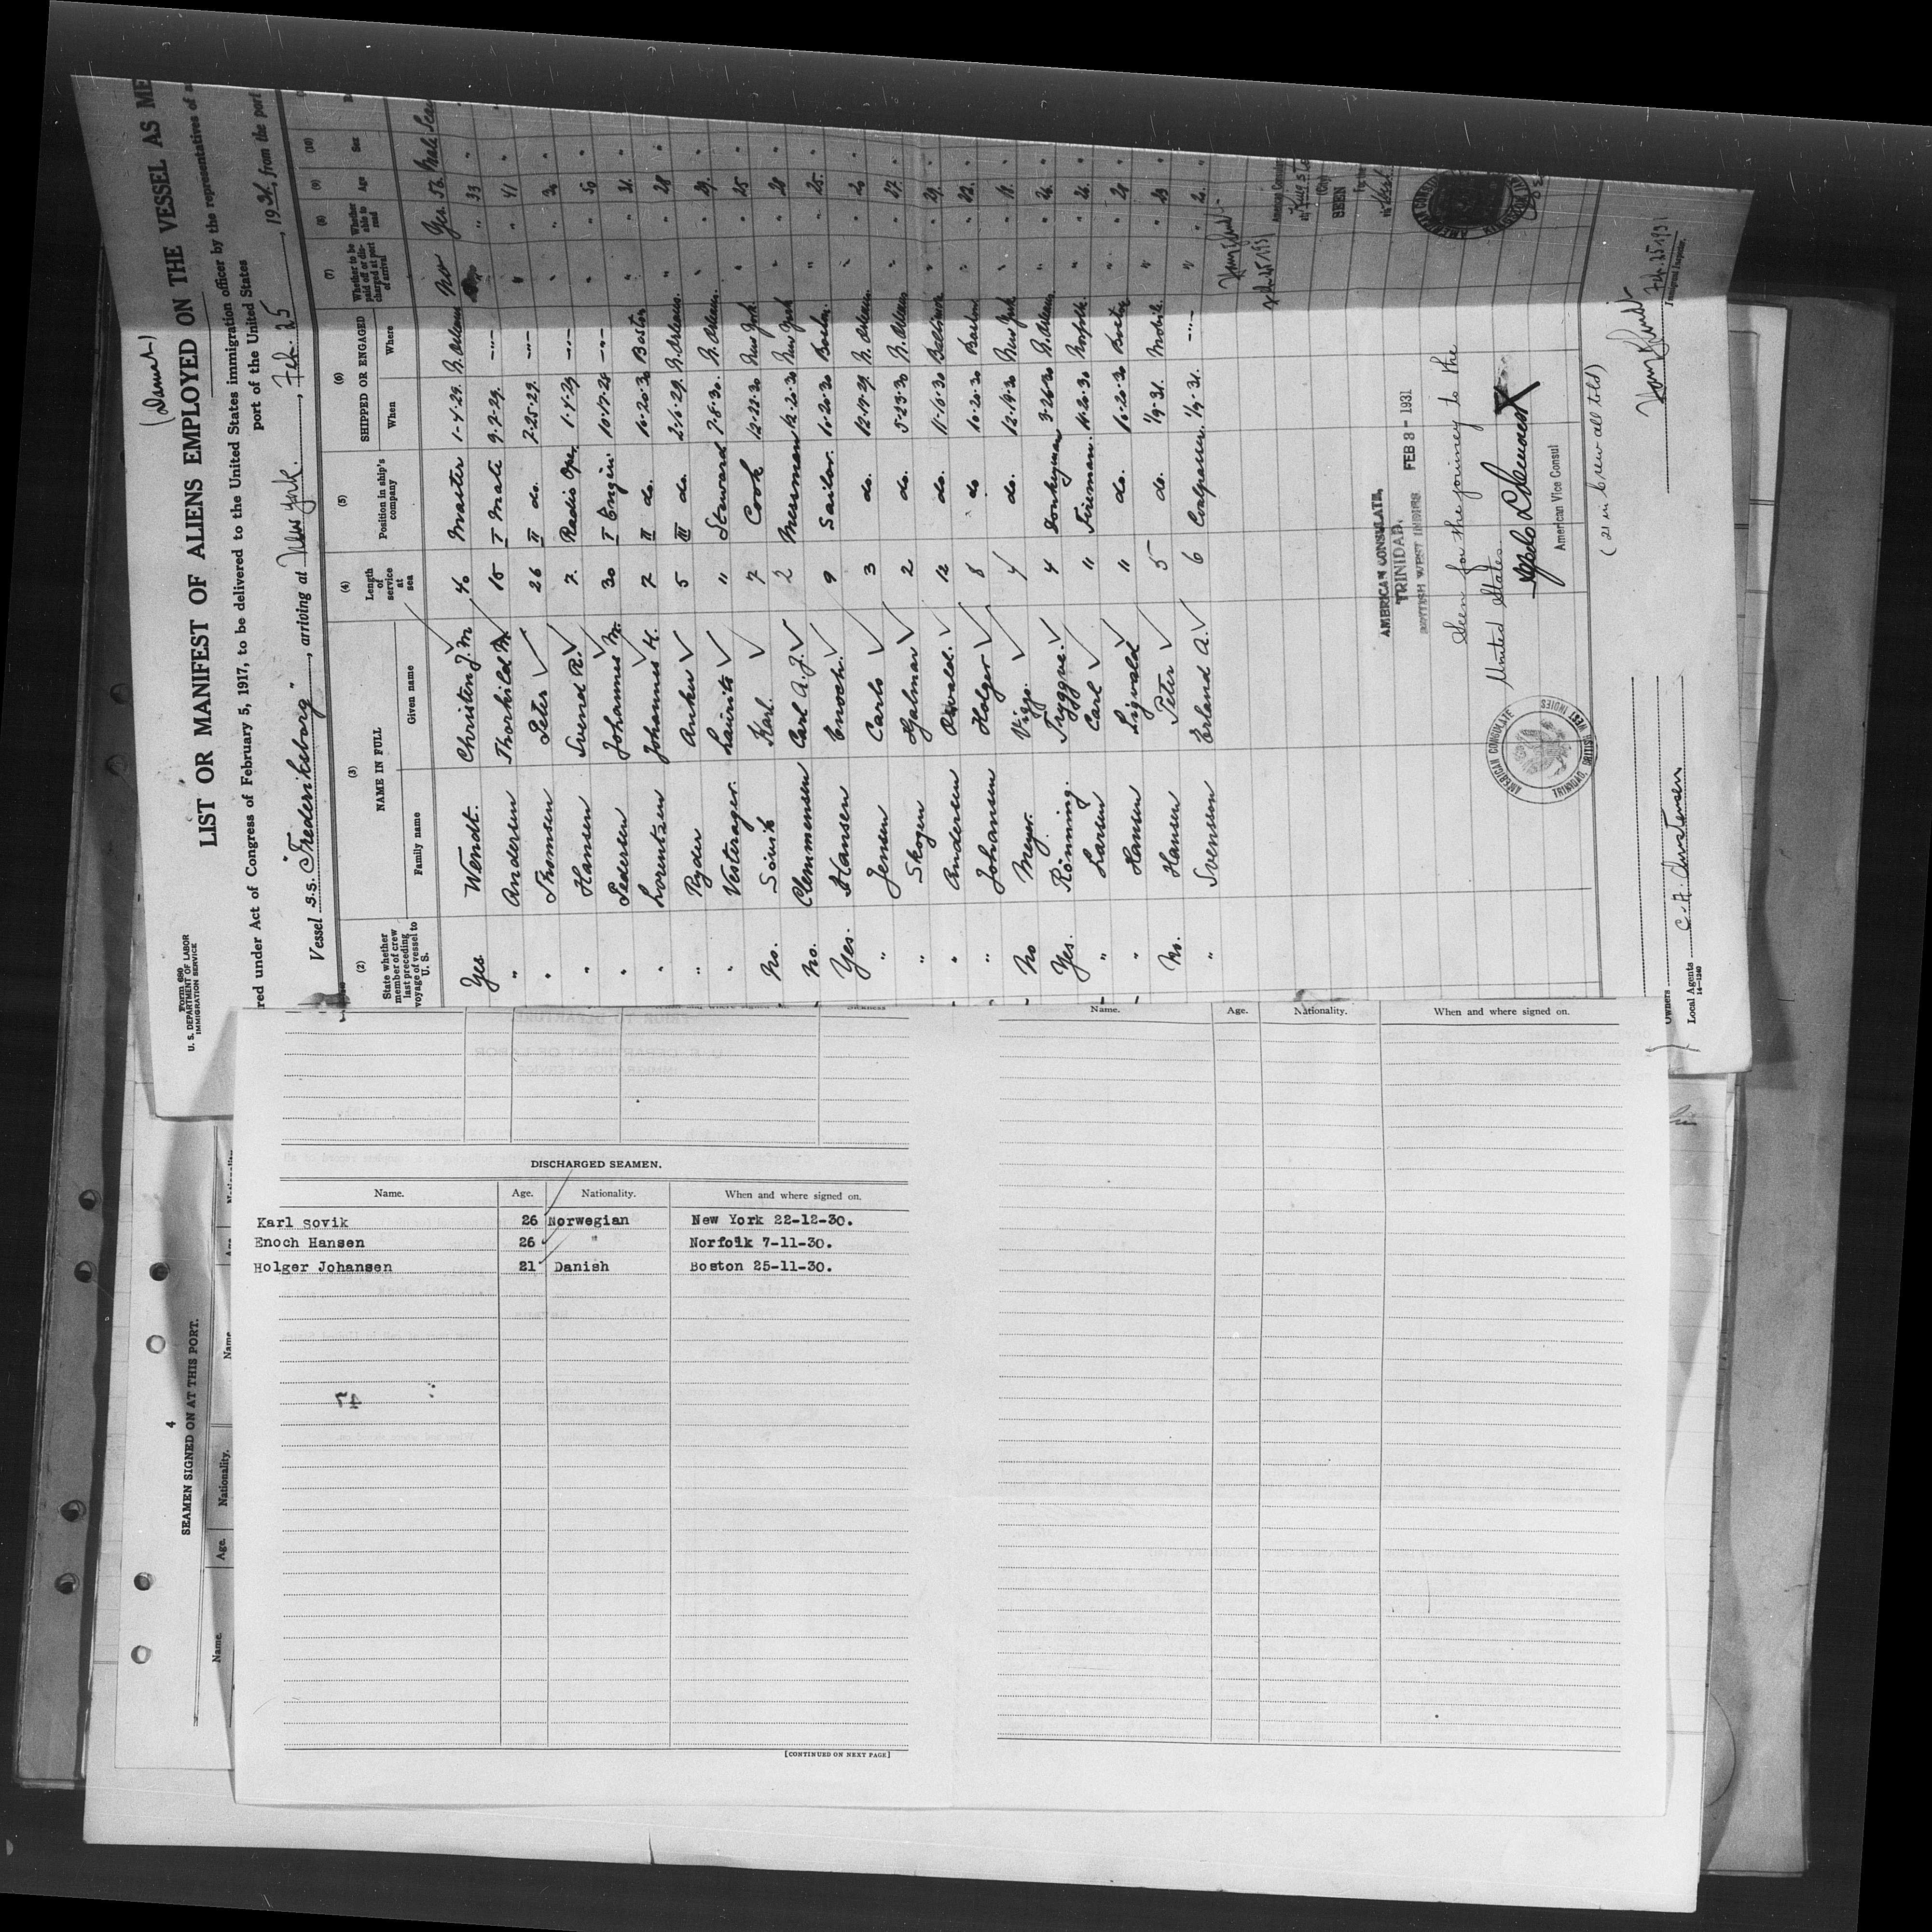 (Danish)
LIST OR MANIFEST OF ALIENS EMPLOYED ON THE VESSEL AS ME
Form 680
U. S. DEPARTMENT OF LABOR
IMMIGRATION SERVICE
red under Act of Congress of February 5, 1917, to be delivered to the United States immigration officer by the representatives of a
port of the United States
Vessel S.S. "Frederiksborg", arriving at New York., Feb. 25, 1931, from the port
(2) (3) (4) (5) (6) (7) (8) (9) (10)
State whether member of crew last preceding voyage of vessel to U. S.
NAME IN FULL
Family name Given name
Length of service at sea
Position in ship's company
SHIPPED OR ENGAGED
When Where
Whether to be paid off or discharged at port of arrival
Whether able to read
Age
Sex
Yes Wendt. Christen J. M. 40 Master 1-4-29. N. Orleans No Yes 56 Male
" Andersen Thorkild M. 15 I Mate 9-2-29. -"- " 33 "
" Thomsen Peter 26 II do. 7-25-29. -"- " " 41 "
" Hansen Svend R. 7. Radio Ope. 1-4-29 -"- " " "
" Pedersen Johannes M. 30 I Engin. 10-17-28 -"- " " 50 "
" Lorentzen Johannes H. 7 II do. 10-20-30 Boston " " 31. "
" Ryder Anker 5 III do. 2-16-29. N. Orleans. " " 28 "
" Vesterager. Laurits " Steward 7-8-30. N. Orleans. " " 29. "
No. Sövik Karl. 7 Cook 12-22-30 New York " " 25 "
No. Clemmensen Carl A. J. 2 Messman 12-20-30 New York " " 28 "
Yes. Hansen Enoch. 9 Sailor. 10-20-30 Boston. " " 25. "
" Jensen Carlo 3 do. 12-19-29 N. Orleans. " " "
" Skogen Hjalmar 2 do. 5-23-30 N. Orleans " " 27. "
" Andersen 12 do. 11-16-30 Baltimore " " 29. "
" Johansen Holger 8 do 10-20-30 Boston " " "
No Meyer. Viggo. 4 do. 12-19-30 New York " " "
Yes. Rönning. Tryggve. 4 Donkeyman 3-26-30 N. Orleans. " " 26. "
" Larsen Carl " Fireman. 11-20-30 Norfolk. " " 26. "
" Hansen Sigvald " do. 10-20-30 Boston " " 28 "
No. Hansen Peter 5 do. 1/9-31. Mobile. " " 23 "
" Svensson Erland A. 6 Coalpasser. 1/9-31. -"- " " "
AMERICAN CONSULATE,
TRINIDAD,
BRITISH WEST INDIES
FEB 8 - 1931
Seen for the journey to the
United States
American Vice Consul
AMERICAN CONSULATE
TRINIDAD, BRITISH WEST INDIES
American Consulate
(City)
SEEN
(21 in crew all told)
Feb. 25 1931
Immigrant Inspector.
Owners
Local Agents C. H. Christensen
14-1240
4
SEAMEN SIGNED ON AT THIS PORT.
Name. Age. Nationality.
Name Age Nationality
DISCHARGED SEAMEN.
Name. Age. Nationality. When and where signed on.
Karl Sovik 26 Norwegian New York 22-12-30.
Enoch Hansen 26 " Norfolk 7-11-30.
Holger Johansen 21 Danish Boston 25-11-30.
[CONTINUED ON NEXT PAGE]
Name. Age. Nationality. When and where signed on.